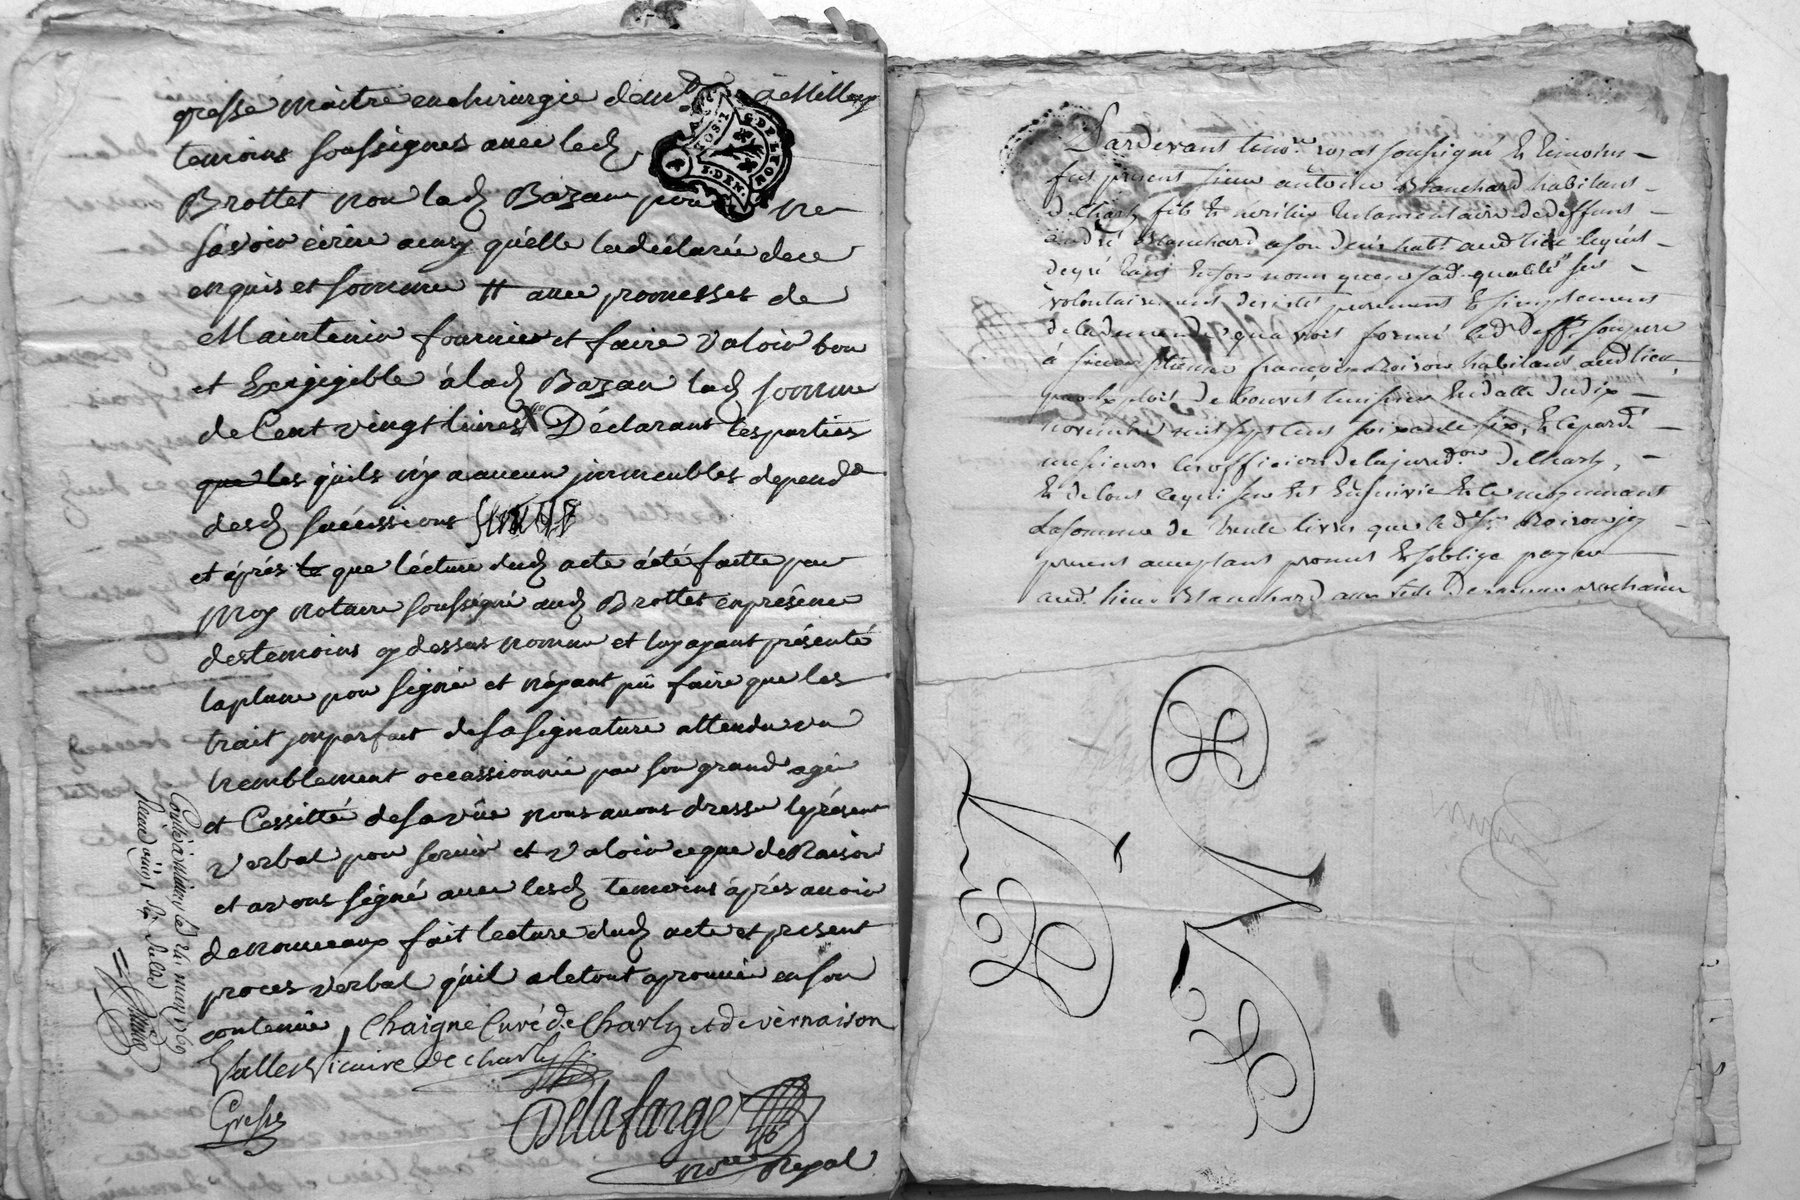 gresse maitre en chirurgie demt à Millery
temoins soussignes avec led
Brottet non lad Bazan pour ne
sávoir écrire ainsy qu'elle la déclarée de ce
enquis et sommée # avec promesses de
Maintenir fournir et faire valoir bon
et Exigigible á lad Bazan lad somme
de Cent vingt livres Déclarant les parties
que les quils ny a aucun jmmeubles depend
desd succéssions
et áprés que lécture dud acte á été faitte par
Moy notaire soussigné aud Brottet en présence
des temoins cy dessus nommé et luy ayant présenté
la plume pour signer et n'áyant pû faire que les
trait jmparfait de sa signature attendu un
tremblement occassionné par son grand agé
et Cessitté de sa vûe nous avons dressé le présent
verbal pour servir et valoir ce que de Raison
et avons signé avec lesd temoins áprés avoir
de nouveaux fait lecture dud acte et présent
proces verbal qu'il a le tout aprouvé en son
contenûe, Chaigne Curé de Charly et de vernaison
Vallet Vicaire de Charly
Gresse
Delafarge
no.re Royal
G. DE LYON
S. DEN.
Pardevant le no.re royal soussigné et temoins
fut present sieur antoine Blanchard habitant
de Charly fils et heritier testamentaire de deffunt
andré Blanchard a son vivant habt. aud lieu lequel
de gré tant en son nom quen sad. qualité s'est
volontairement desisté purement et simplement
de la demande qu'avoit formé led. deff.t son pere
á sieur Etienne françois Noiron habitant aud lieu
par exploit de en datte du dix
novembre mil sept cent soixante six, et le pard.t
messieurs les officiers de la jurid.on de Charly,
et de tout ce qui sen est Ensuivie et ce moyennant
La somme de trente livres que led. sr. Noiron icy
present acceptant promet et soblige payer
aud. sieur Blanchard prochaine